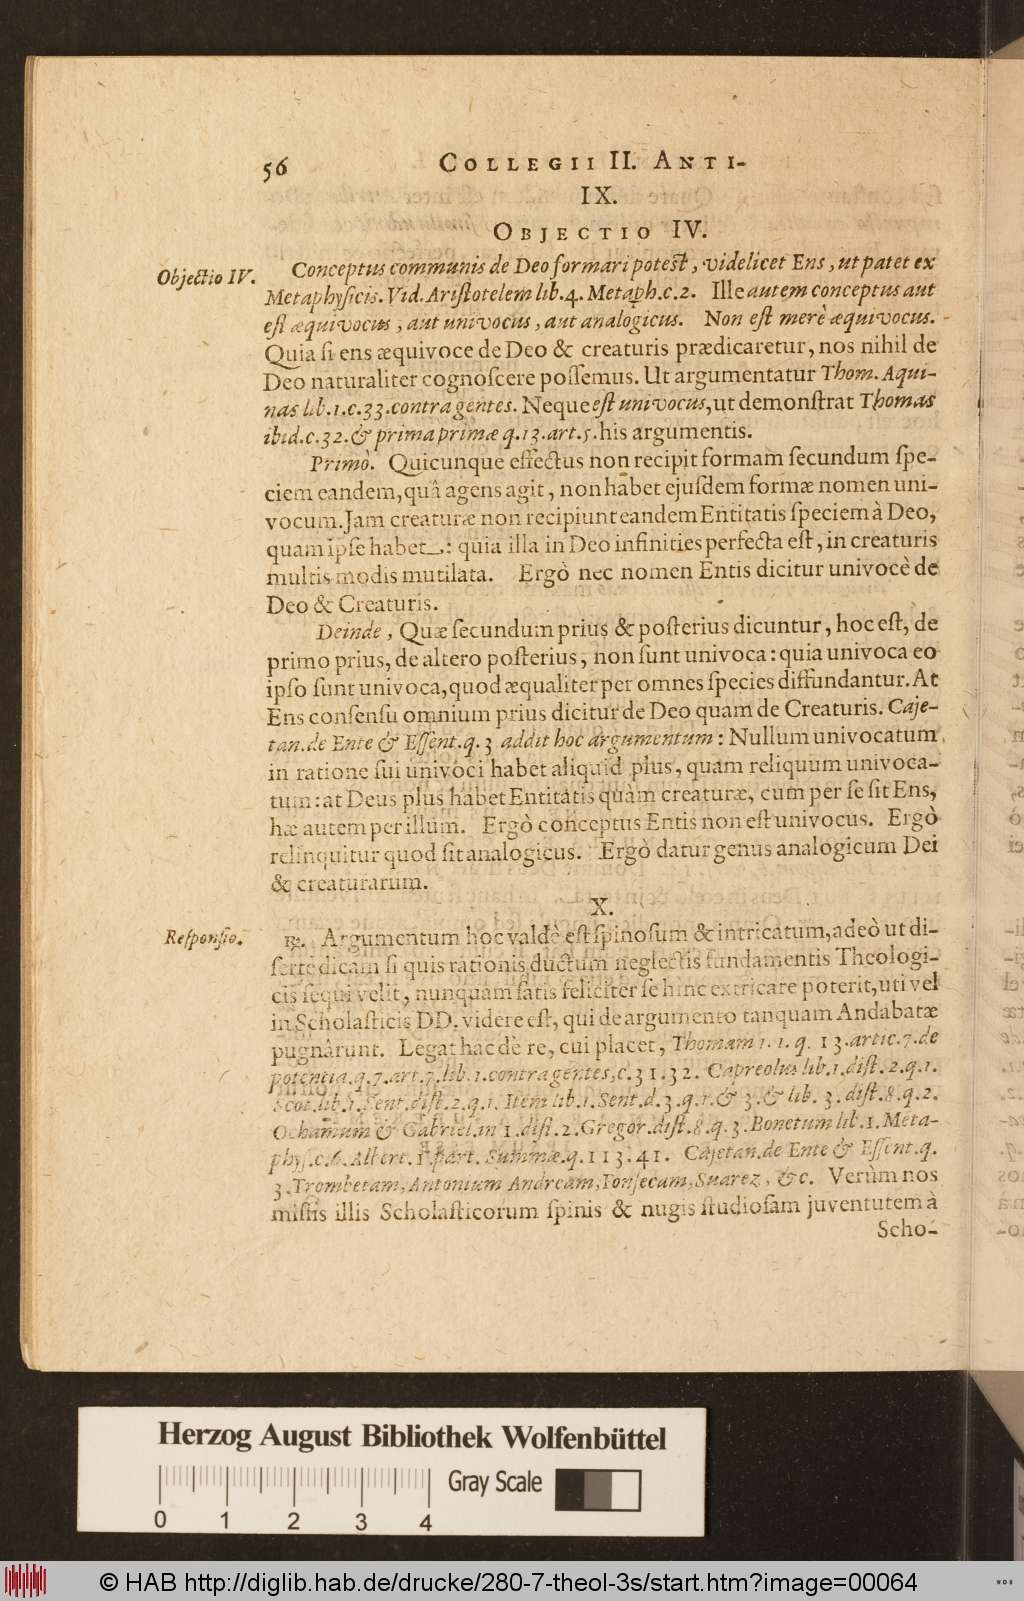 56 COLLEGII II. ANTI-
IX.
OBJECTIO IV.
Objectio IV.
Conceptus communis de Deo formari potest, videlicet Ens, ut patet ex
Metaphysicis. Vid. Aristotelem lib.4. Metaph.c.2. Ille autem conceptus aut
est æquivocus, aut univocus, aut analogicus. Non est merè æquivocus.
Quia si ens æquivoce de Deo & creaturis prædicaretur, nos nihil de
Deo naturaliter cognoscere possemus. Ut argumentatur Thom. Aqui-
nas lib.1.c.33.contra gentes. Neque est univocus, ut demonstrat Thomas
ibid.c.32.& prima primæ q.13.art.5. his argumentis.
Primò. Quicunque effectus non recipit formam secundum spe-
ciem eandem, quâ agens agit, non habet ejusdem formæ nomen uni-
vocum. Jam creaturæ non recipiunt eandem Entitatis speciem à Deo,
quam ipse habet: quia illa in Deo infinities perfecta est, in creaturis
multis modis mutilata. Ergò nec nomen Entis dicitur univocè de
Deo & Creaturis.
Deinde, Quæ secundum prius & posterius dicuntur, hoc est, de
primo prius, de altero posterius, non sunt univoca: quia univoca eo
ipso sunt univoca, quod æqualiter per omnes species diffundantur. At
Ens consensu omnium prius dicitur de Deo quam de Creaturis. Caje-
tan. de Ente & Essent.q.3 addit hoc argumentum: Nullum univocatum
in ratione sui univoci habet aliquid plus, quam reliquum univoca-
tum: at Deus plus habet Entitatis quàm creaturæ, cum per se sit Ens,
hæ autem per illum. Ergò conceptus Entis non est univocus. Ergò
relinquitur quod sit analogicus. Ergò datur genus analogicum Dei
& creaturarum.
X.
Responsio.
℞. Argumentum hoc valdè est spinosum & intricatum, adeò ut di-
sertè dicam si quis rationis ductum neglectis fundamentis Theologi-
cis sequi velit, nunquam satis feliciter se hinc extricare poterit, uti vel
in Scholasticis DD. videre est, qui de argumento tanquam Andabatæ
pugnârunt. Legat hac de re, cui placet, Thomam 1.1.q.13.artic.7.de
potentia.q.7.art.7.lib.1.contra gentes,c.31.32. Capreolus lib.1.dist.2.q.1.
Scot.lib.1.Sent.dist.2.q.1. Item lib.1.Sent.d.3.q.1.& 3.& lib. 3.dist.8.q.2.
Ochamum & Gabriel.in 1.dist.2.Gregor.dist.8.q.3.Bonetum lib.1.Meta-
phys.c.6.Albert.1.part. Summæ.q.113.41. Cajetan.de Ente & Essent.q.
3.Trombetam, Antonium Andream, Fonsecam, Suarez, &c. Verùm nos
missis illis Scholasticorum spinis & nugis studiosam juventutem à
Scho-
Herzog August Bibliothek Wolfenbüttel
Gray Scale
0 1 2 3 4
© HAB http://diglib.hab.de/drucke/280-7-theol-3s/start.htm?image=00064